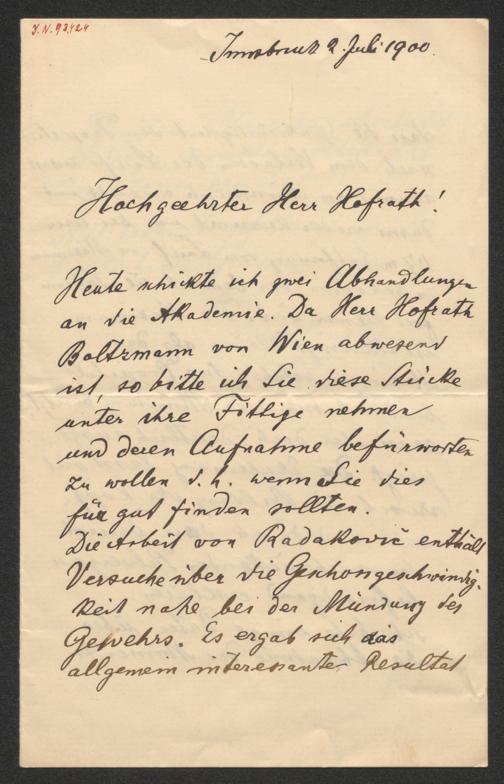 J.N. 93.424
Innsbruck 2. Juli 1900.
Hochgeehrter Herr Hofrath!
Heute schickte ich zwei Abhandlungen
an die Akademie. Da Herr Hofrath
Boltzmann von Wien abwesend
ist, so bitte ich Sie diese Stücke
unter ihre Fittige nehmen
und deren Aufnahme befürworten
zu wollen d. h. wenn Sie dies
für gut finden sollten.
Die Arbeit von Radaković enthält
Versuche über die Geschossgeschwindig-
keit nahe bei der Mündung des
Gewehrs. Es ergab sich das
allgemein interessante Resultat